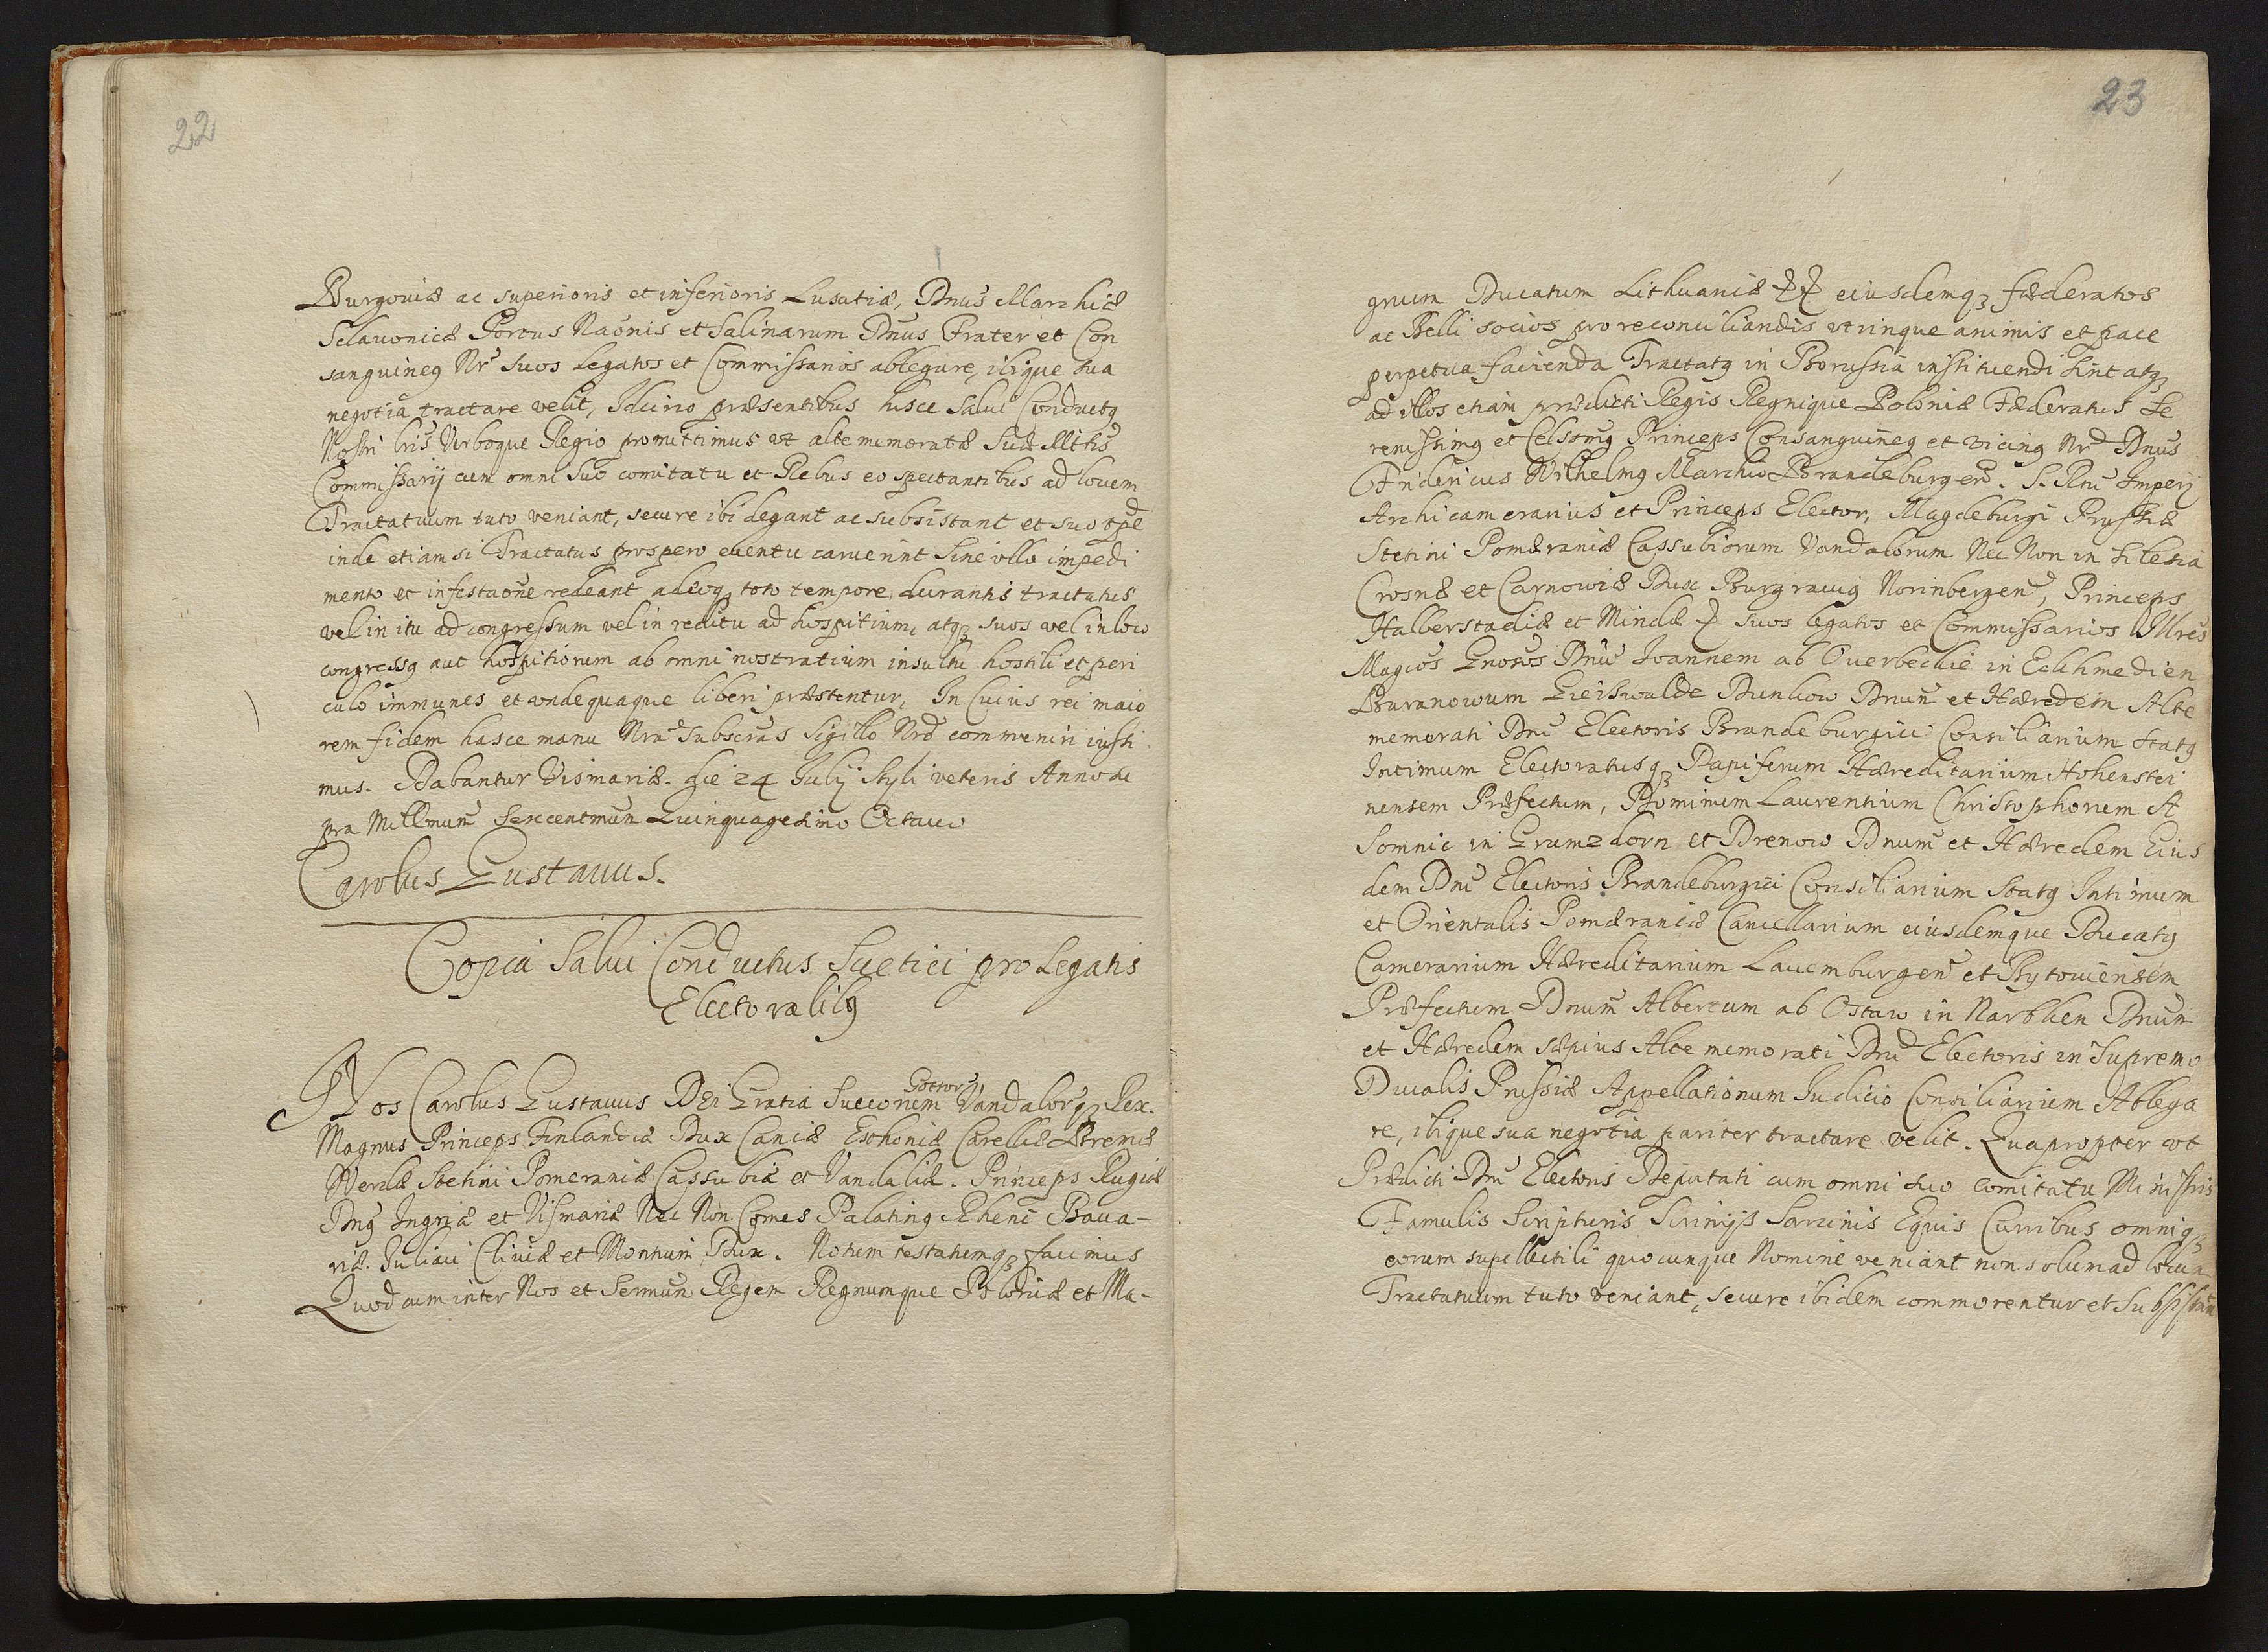 22
Burgoviæ ac superioris et inferioris Lusatiæ, Dnus Marchiæ
Sclavonicæ Portus Naonis et Salinarum Dnus Frater et Con
sanguineq Nr suos Legatos et Commissarios ablegare, ibique sua
negotia tractare velit, Idcirco præsentibus hisce Salui Conductq
Nostri lris Verboque Regio promittimus vt alte memoratæ Suæ Mttis
Commissarij cum omni suo comitatu et Rebus eo spectantibus ad locum
Tractatuum tuto veniant, secure ibi degant ac subsistant et suo tpe
inde etiamsi Tractatus prospero euentu caruerint sine ullo impedi
mento et infestaone redeant adeoqʒ toto tempore durantis tractatus
vel in itu ad congressum vel in reditu ad hospitium, atqʒ suos vel in loco
congressq aut hospitiorum ab omni nostratium insultu hostili et peri
culo immunes et undequaque liberi præstentur, In Cuius rei maio
rem fidem hasce manu Nra Subscras Sigillo Nro communiri iussi
mus. Dabantur Vismariæ. die 24 Julij Styli veteris Anno su
pra Millmum Sexcentmum Quinquagesimo Octauo
Carolus Gustauus.
Copia Salui Conductus Suetici pro Legatis
Electoralibq
Nos Carolus Gustauus DEi Gratia Suecorum Gottor Vandalorqʒ Rex.
Magnus Princeps Finlandiæ Dux Caniæ Esthoniæ Careliæ Bremæ
Verdæ Stetini Pomeraniæ Cassubiæ et Vandaliæ. Princeps Rugiæ
Dnq Ingriæ et Vismariæ Nec Non Comes Palatinq Rheni Baua-
riæ. Juliaci Cliviæ et Montium Dux. Notum testatumqʒ facimus
Quod cum inter Nos et Sermum Regem Regnumque Poloniæ et Ma-
23
gnum Ducatum Lithuaniæ eiusdemqʒ fæderatos
ac Belli socios pro reconciliandis vtrinque animis et pace
perpetua facienda Tractatq in Borussia instituendi sint atqʒ
ad illos etiam prædicti Regis Regnique Poloniæ Fæderatus Se
renissimq et Celssmq Princeps Consanguineq et vicinq Nr Dnus
Fridericus Wilhelmq Marchio Brandeburgen. S. Rni Imperij
Archicamerarius et Princeps Elector, Magdeburgi Prussiæ
Stetini Pomæraniæ Cassubiorum Vandalorum Nec Non in Silesia
Crosnæ et Carnowiæ Dux Burgrauiq Norinbergen, Princeps
Halberstadiæ et Mindæ suos legatos et Commissarios Illres
Magcos Gnosos Dnu Joannem ab Ouerbeckie in Eclihmedien
Buranowum Gieiswalde Dunkow Dnum et Hæredem Alte
memorati Dni Electoris Brandeburgici Consiliarium Statq
Intimum Electoratusqʒ Dapiferum Hæreditarium Hohenstei
nensem Præfectum, Dominum Laurentium Christophorum A
Somnic in Grumzdorn et Drenow Dnum et Hæredem Eius
dem Dni Electoris Brandeburgici Consiliarium Statq Intimum
et Orientalis Pomæraniæ Cancellarium eiusdemque Ducatq
Camerarium Hæreditarium Lauemburgen et Bytouiensem
Præfectum Dnum Albertum ab Ostaw in Narbken Dnum
et Hæredem sæpius Alte memorati Dni Electoris in Supremo
Ducalis Prussiæ Appellationum Judicio Consiliarium Ablega
re, ibique sua negotia pariter tractare velit. Quapropter vt
Prædicti Dni Electoris Deputati cum omni suo Comitatu Ministris
Famulis Scripturis Scrinijs Sarcinis Equis Curribus omniqʒ
eorum supellectili quocunque Nomine veniant non solum ad locum
Tractatuum tuto veniant, secure ibidem commorentur et Subsistant